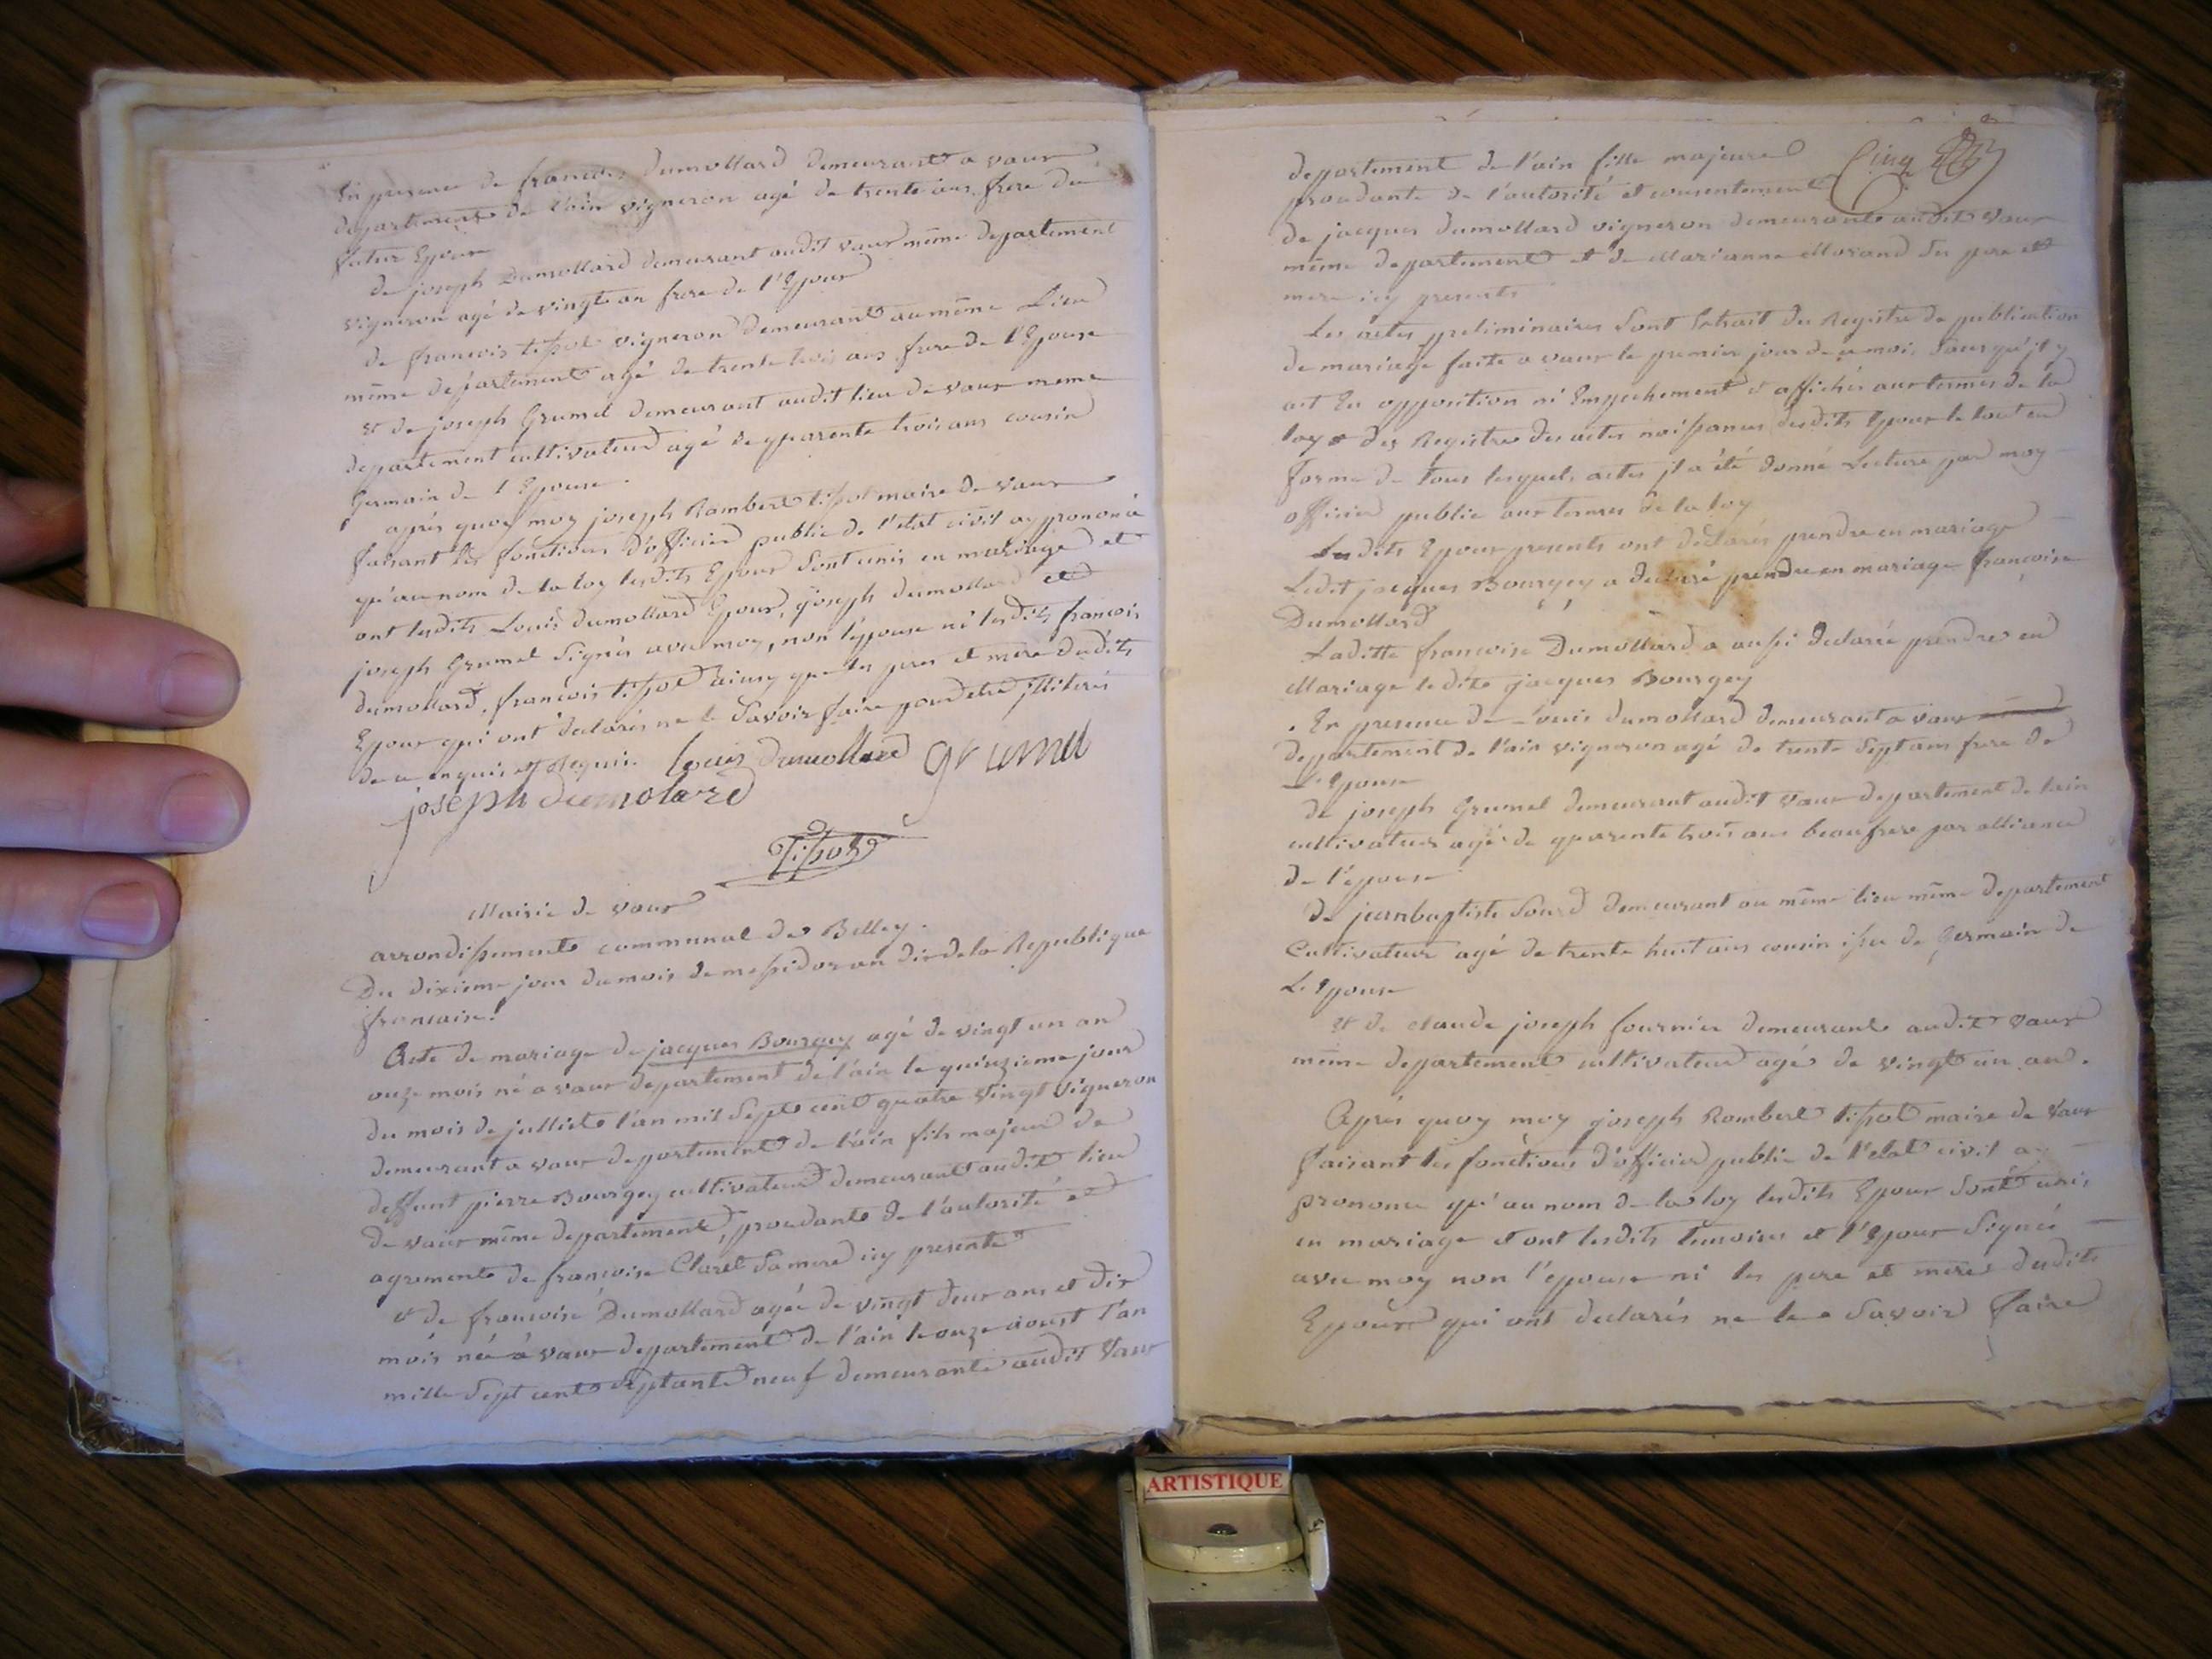 En presence de francois dumollard demeurant a vaux
departement de l'ain vigneron agé de trente ans frere du
futur Epoux
de joseph Dumollard demeurant audit vaux même departement
vigneron agé de vingt un frere de l'Epoux
de francois tissot vigneron demeurant au même Lieu
même departement agé de trente trois ans frere de l'Epouse
et de joseph Grumel demeurant audit lieu de vaux meme
departement cultivateur agé de quarente trois ans cousin
Germain de l'Epouse.
aprés quoy moy joseph Rambert tissot maire de vaux
faisant les fonctions d'officier public de l'etat civil ay prononcé
qu'au nom de la loy lesdits Epoux sont unis en mariage et
ont lesdits Louis dumollard Epoux, joseph dumollard et
joseph Grumel signés avec moy, non l'epouse ni lesdits francois
dumollard, francois tissot ainsy que les pere et mere dudits
Epoux qui ont declarés ne le savoir faire pour etre illiterés
de ce enquis et requis. Louis dumollard grumel
joseph dumolard
Tissot
Mairie de vaux
arrondissement communal de Belley.
Du dixieme jour du mois de messidor an dix de la Republique
francaise.
Acte de mariage de jacques Bourgey agé de vingt un an
onze mois né a vaux departement de l'ain le quinzieme jour
du mois de julliet l'an mil sept cent quatre vingt vigneron
demeurant a vaux departement de l'ain fils majeur de
deffunt pierre Bourgey cultivateur demeurant audit lieu
de vaux même departement, procedante de l'autorité et
agrement de francoise Claret sa mere icy presente
et de francoise Dumollard agée de vingt deux ans et dix
mois née à vaux departement de l'ain le onze aoust l'an
mille sept cent septante neuf demeurante audit vaux
Cinq
departement de l'ain fille majeure
procedante de l'autorité et consentement
de jacques dumollard vigneron demeurant audit vaux
même departement et de Marianne Morand ses pere et
mere icy presents
Les actes preliminaires sont Extrait du Registre de publication
de mariage faite a vaux le premier jour de ce mois sans qu'il y
ait Eu opposition ni Empechement et affichés aux termes de la
loy et des Registres des actes naissances desdits Epoux le tout en
forme de tous lesquels actes il a été donné Lecture par moy
officier public aux termes de la loy
Lesdits Epoux presents ont declarés prendre en mariage
Ledit jacques Bourgey a declaré prendre en mariage françoise
Dumollard
Laditte francoise Dumollard a aussi declarée prendre en
Mariage ledit jacques Bourgey
. En presence de Louis dumollard demeurant a vaux
departement de l'ain vigneron agé de trente sept ans frere de
L'Epouse
de joseph Grumel demeurant audit vaux departement de lain
cultivateur agé de quarente trois ans beaufrere par alliance
de l'epouse
de jeanbaptiste sourd demeurant au même lieu même departement
Cultivateur agé de trente huit ans cousin issu de Germain de
L'Epouse
et de claude joseph fournier demeurant audit vaux
même departement cultivateur agé de vingt un an.
Aprés quoy moy joseph Rambert tissot maire de vaux
faisant les fonctions d'officier public de l'etat civil ay
prononcé qu'au nom de la loy lesdits Epoux sont unis
en mariage et ont lesdits temoins et l'Epoux signés
avec moy non l'epouse ni les pere et mere dudits
Epoux qui ont declarés ne le savoir faire